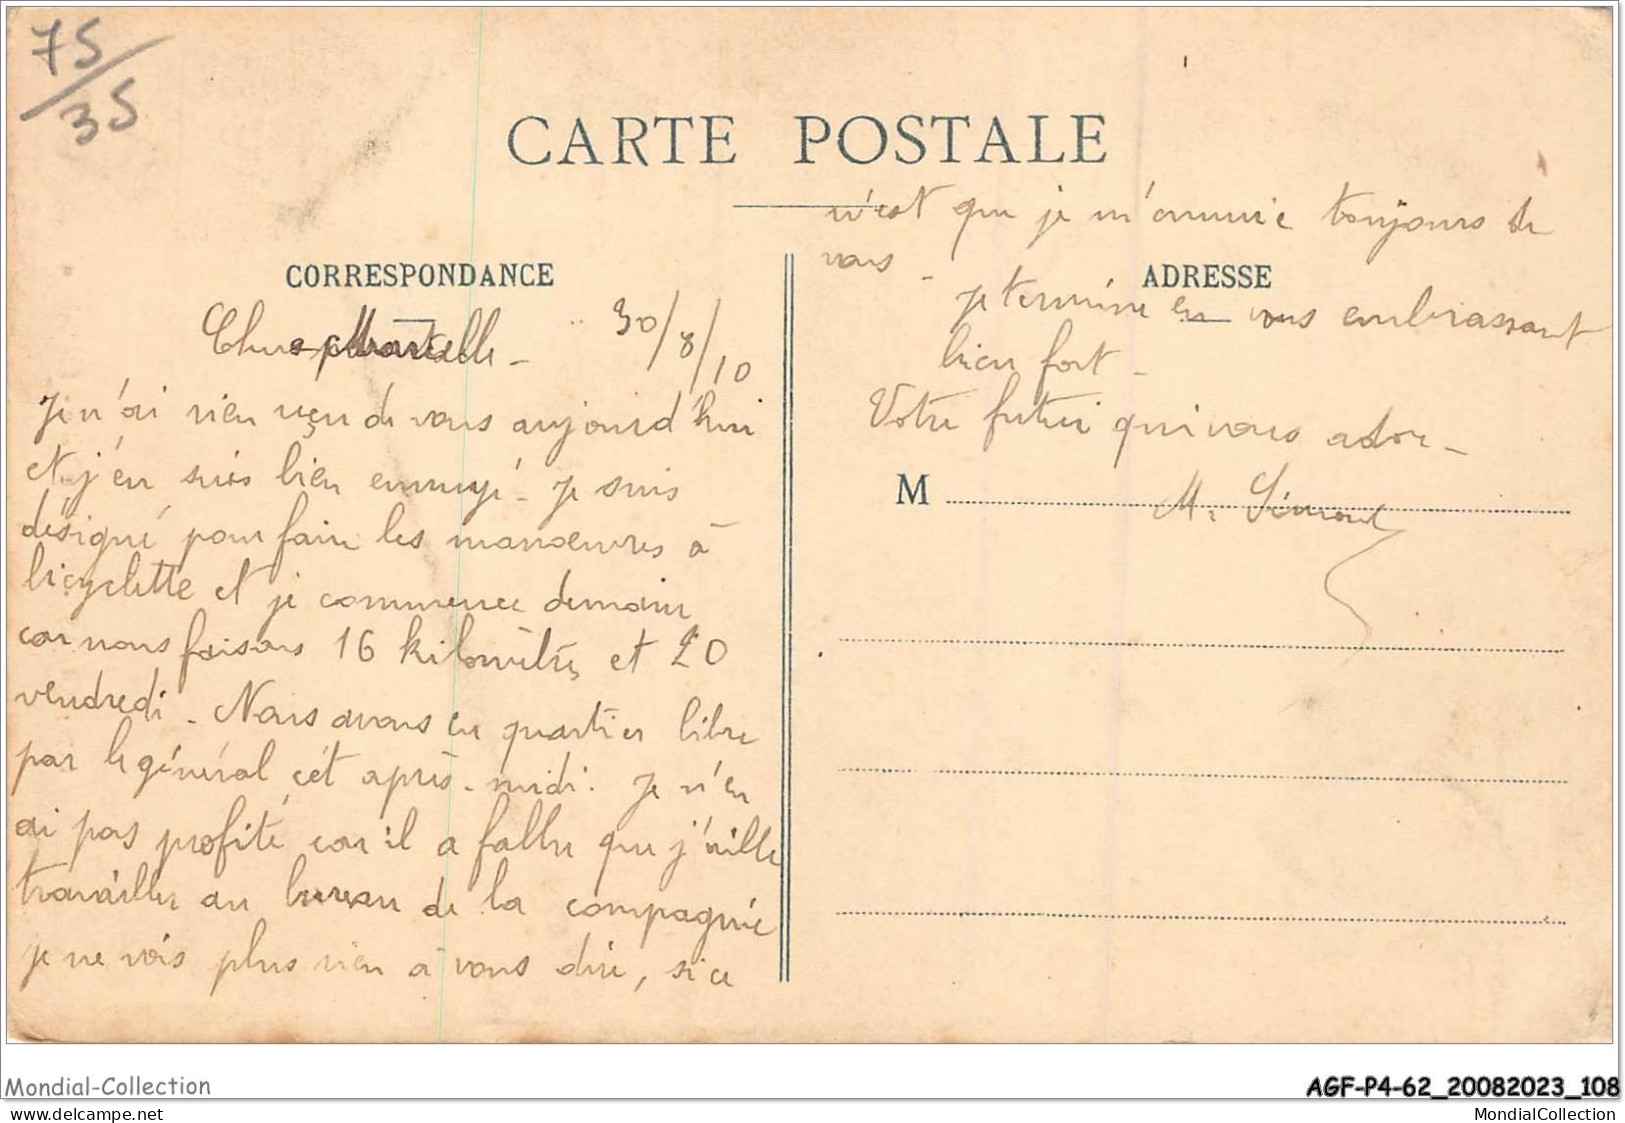 75/35
CARTE POSTALE
CORRESPONDANCE
30/8/10
Je n'ai rien reçu de vous aujourd'hui
et j'en suis bien ennuyé - je suis
désigné pour faire les manoeuvres à
bicyclette et je commence demain
car nous faisons 16 kilomètres et 20
vendredi - Nous avons eu quartier libre
par le général cét après-midi. Je n'en
ai pas profité, car il a fallu que j'aille
travailler au bureau de la compagnie
je ne vois plus rien à vous dire, si ce
n'est que je m'ennuie toujours de
vous -
ADRESSE
je termine en vous embrassant
bien fort -
Votre futur qui vous adore -
M
M. Simont
Mondial-Collection
AGF-P4-62_20082023_108
www.delcampe.net
MondialCollection